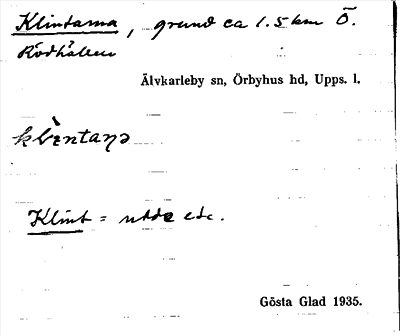 Klintarna, grund ca 1.5 km Ö.
Rödhällen
Älvkarleby sn, Örbyhus hd, Upps. l.
klìntaṇa
Klint = udde etc.
Gösta Glad 1935.